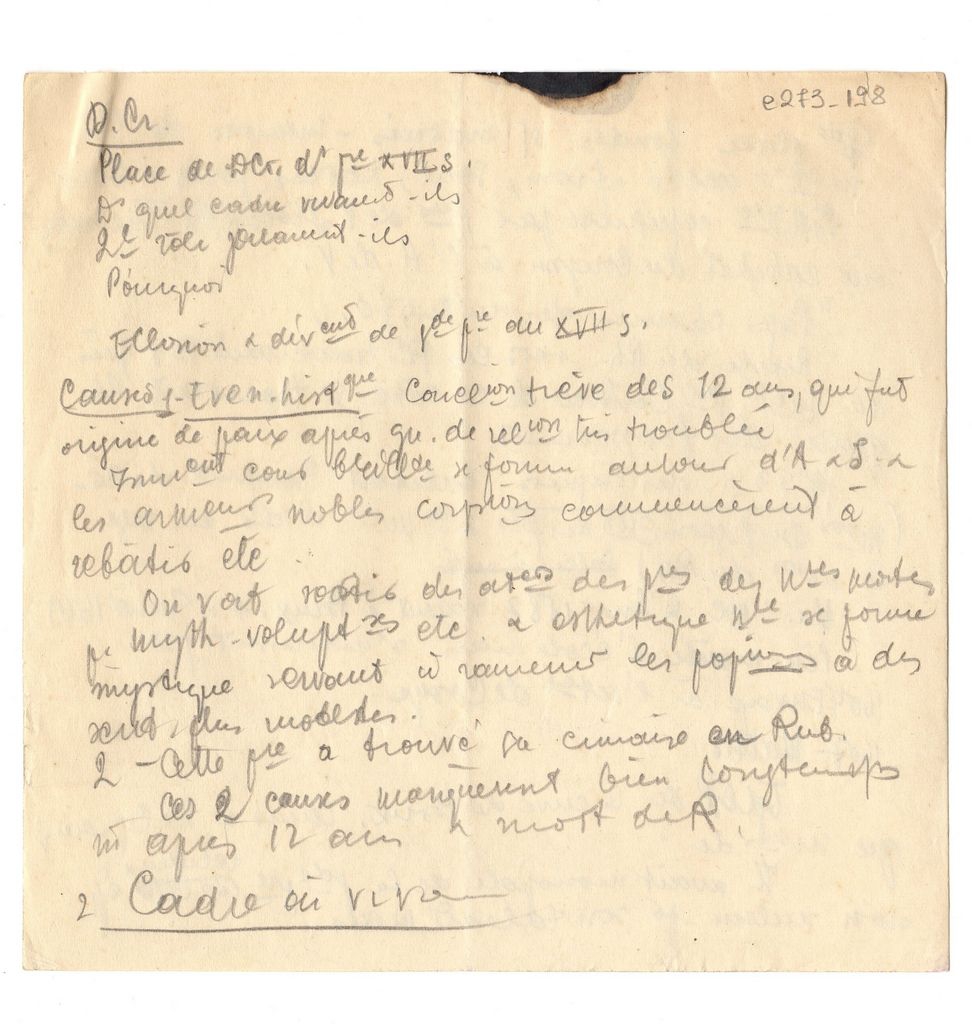 e273-198
D. Cr.
Place de DCr. ds pre XVII s.
Ds quel cadre vivaient-ils
Ql rôle jouaient-ils
Pourquoi
Eclosion & dév ent de gde pre du XVII s.
Causes 1- Even. hist que Concl ion trêve des 12 ans, qui fut
origine de paix après qu. de rel ions très troublée
cour se forme autour d'A & I. &
les armeurs nobles commencèrent à
rebâtir etc
On voit sortir des at ers des pres des nres mortes
pe myth- volupt ses etc. & esthétique se forme
mystique servant à ramener les à des
plus modestes.
2 - Cette pre a trouvé sa cimaise en Rub.
Ces 2 causes manquèrent bien longtemps
ni après 12 ans & mort de R.
2 Cadre où vivre